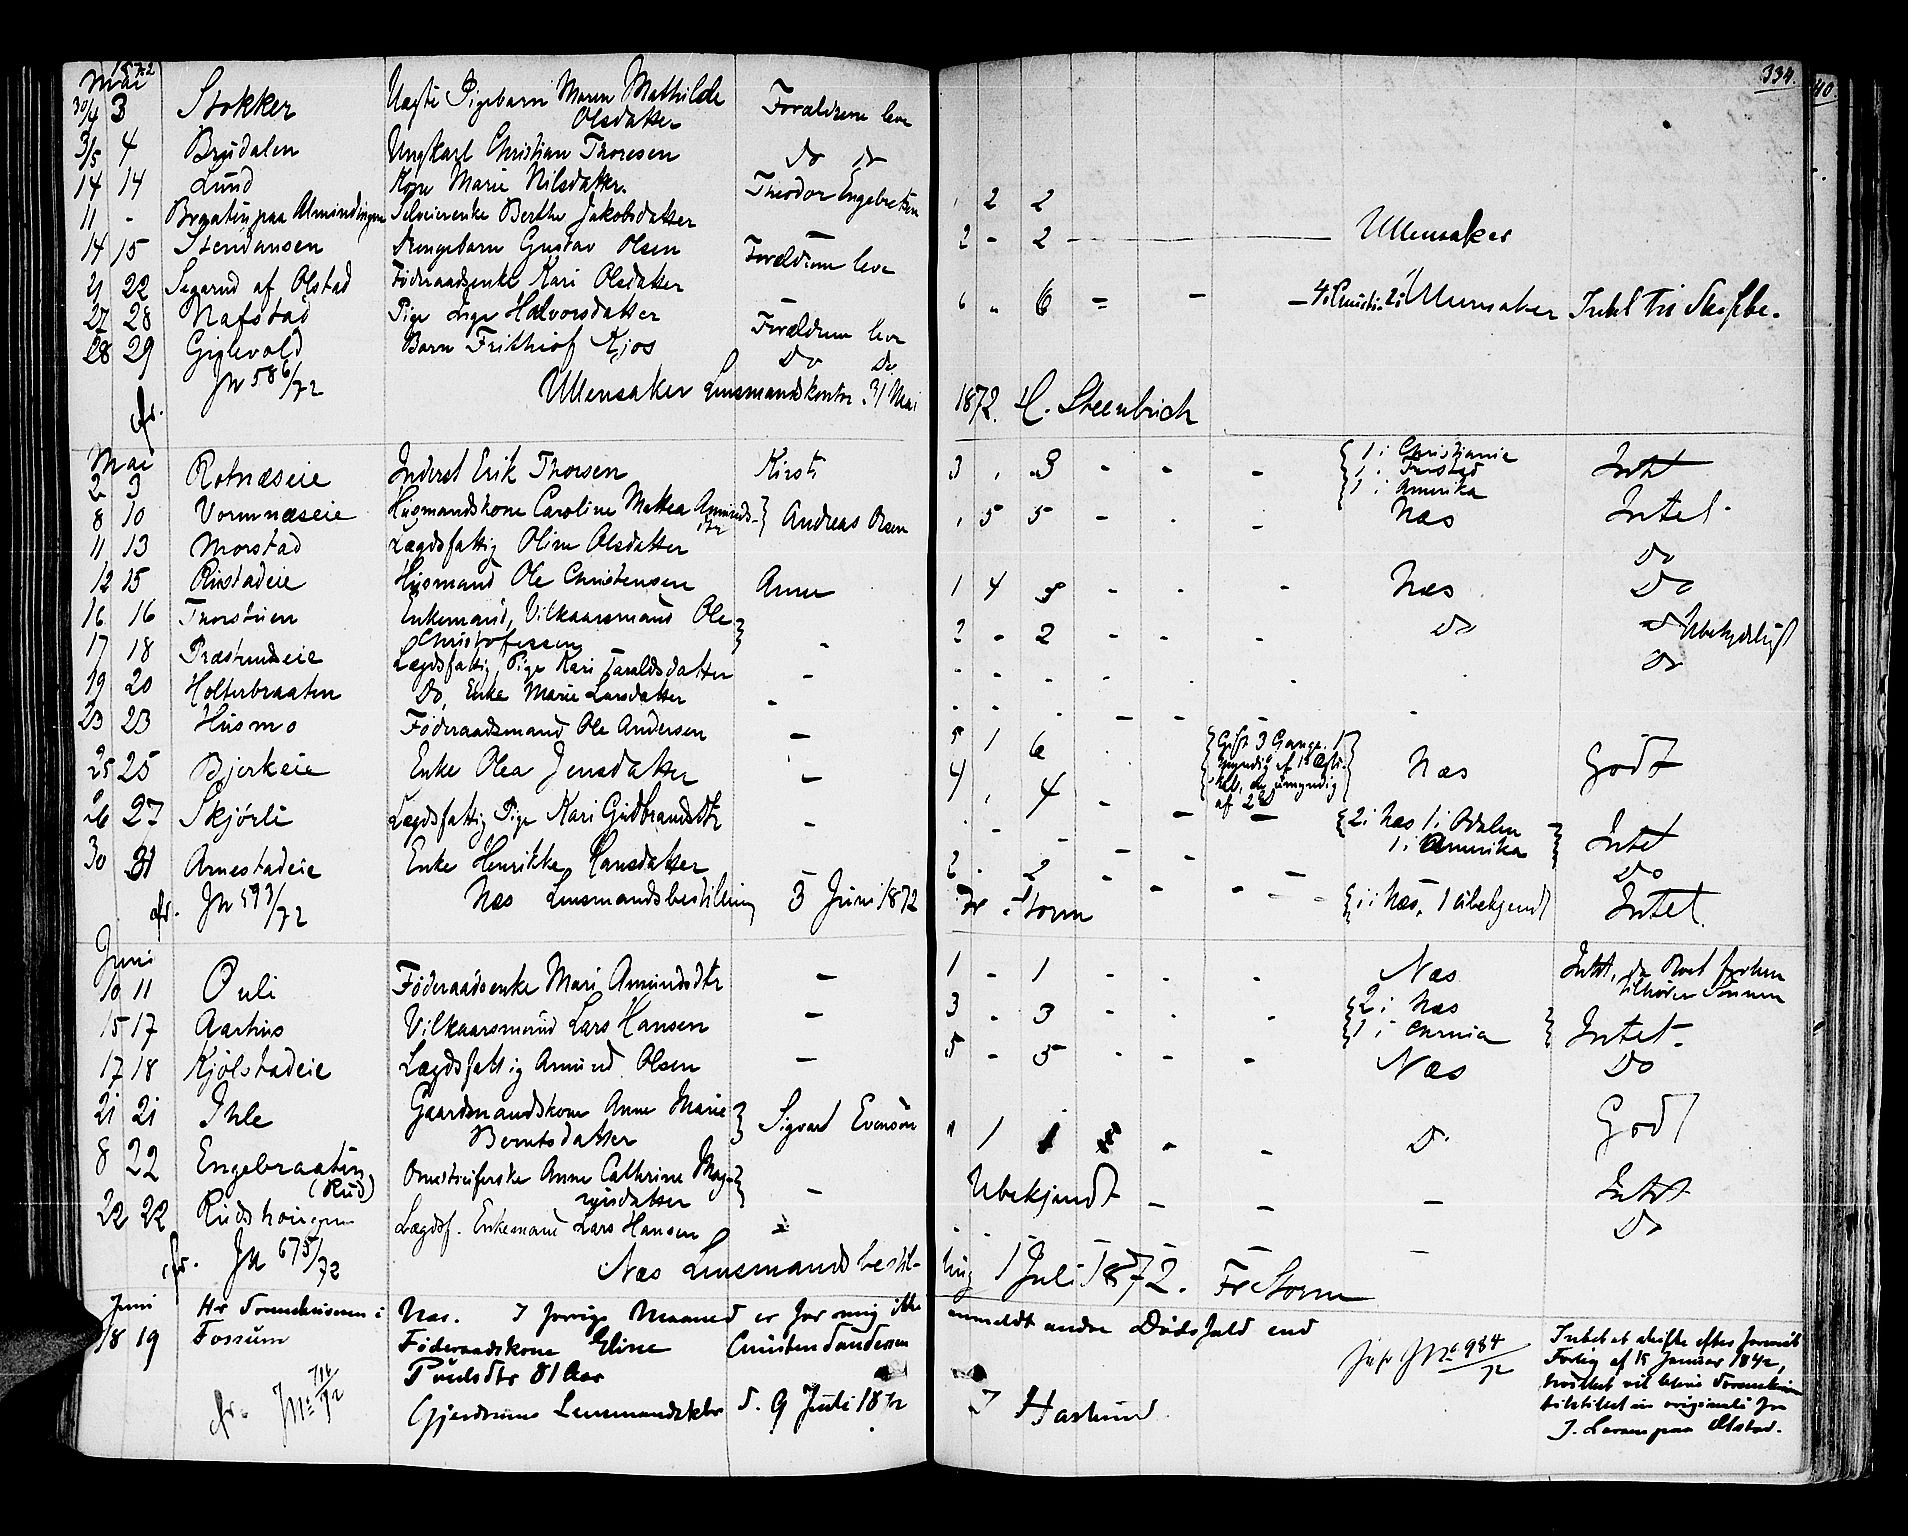 1872
334.
40
Mai
30/4 3 Stokker Uægte Pigebarn Maren Mathilde Olsdatter Forældrene leve
3/5 4 Brudalen Ungkarl Christian Thoresen Do Do
14 14 Lund Kone Marie Nilsdatter. Theodor Engebretsen 2 2
11 - Braaten paa Almindingen Selveierenke Berthe Jakobsdatter - 2 - 2 - Ullensaker
14 15 Stendansen Drengebarn Gustav Olsen Forældrene leve
21 22 Segerud af Olstad Føderaadsenke Kari Olsdatter - 6 " 6 - - Ullensaker Intet til Skifte
27 28 Nafstad Pige Inge Halvorsdatter Forældrene leve
28 29 Giglevold Barn Frithiof Kjos Do Do
cfr. JN 586/72 Ullensaker Lensmandskontor 31 Mai 1872. H. Steenbuch
Mai
2 3 Rotnæseie Inderst Erik Thorsen Kirsti 3 , 3 - - - 1 i Christiania 1 i Furstad 1 i Amerika Intet
8 10 Vormnæseie Husmandskone Caroline Mathea Amunds-dtr Andreas Olsen , 5 5 - . - Næs Intet.
11 13 Morstad Lægdsfattig Oline Olsdatter Do
12 15 Ristadeie Husmand Ole Christensen Anne 1 4 5 - . - Næs Do
16 16 Thorstuen Enkemand, Vilkaarsmand Ole Christofersen - 2 - 2 - - - Do Do Ubetydeligt
17 18 Præstrudseie Lægdsfattig Pige Kari Taraldsdatter - Do
19 20 Holterbraaten Do, Enke Marie Larsdatter -
23 23 Husmo Føderaadsmand Ole Andersen - 5 1 6 Gift 3 Gange. 1 Umyndig af 1ste Ægteskab, en umyndig af 2det Næs Godt
25 25 Bjerkeie Enke Olea Jensdatter - 4 , 4 - - - 2 i Næs 1 i Odalen 1 i Amerika Intet
26 27 Skjørli Lægdsfattig Pige Kari Gudbrandsdtr - Do
30 31 Arnestadeie Enke Henrikke Hansdatter 2 . 2 - - - 1 i Næs, 1 ubekjendt Intet.
cfr. JN 593/72 Næs Lensmandsbestilling 3 Juni 1872 Fr Storm
Juni
10 11 Ouli Føderaadsenke Mari Amundsdtr - 1 - 1 - - - Næs Intet, da Boet forhen tilhører Sønnen
15 17 Aarhus Vilkaarsmand Lars Hansen - 3 . 3 - . . 2 i Næs 1 i Intet.
17 18 Kjølstadeie Lægdsfattig Amund Olsen - 5 - 5 - - - Næs Do
21 21 Ihle Gaardmandskone Anne Marie Berntsdatter Sigvart Evensen 1 1 - - D. Godt
8 22 Engebraaten (Rud) Omstreiferske Anne Cathrine Magnusdatter - Ubekjendt - - - Intet
22 22 Rudshaugen Lægdsf. Enkemand Lars Hansen - Do
cfr. JN 675/72 Næs Lensmandsbestilling 1 Juli 1872. Fr Storm
Juni Hr Sorenskriveren i Næs. I forrige Maaned er for mig ikke anmeldt andre Dødsfald end
18 19 Fossum Føderaadskone Eline Poulsdtr 81 Aar Christen Gundersen
Jvfr JNo 984/72
Intet at skifte efter formentlig Forlig af 15 Januar 1842, hvilket vil blive Sorenskriveren tilstillet in originali fra J. Larsen paa Olstad.
cfr. JNo 716/72 Gjerdrums Lensmandskbr d. 9 Juli 1872 J Haslund